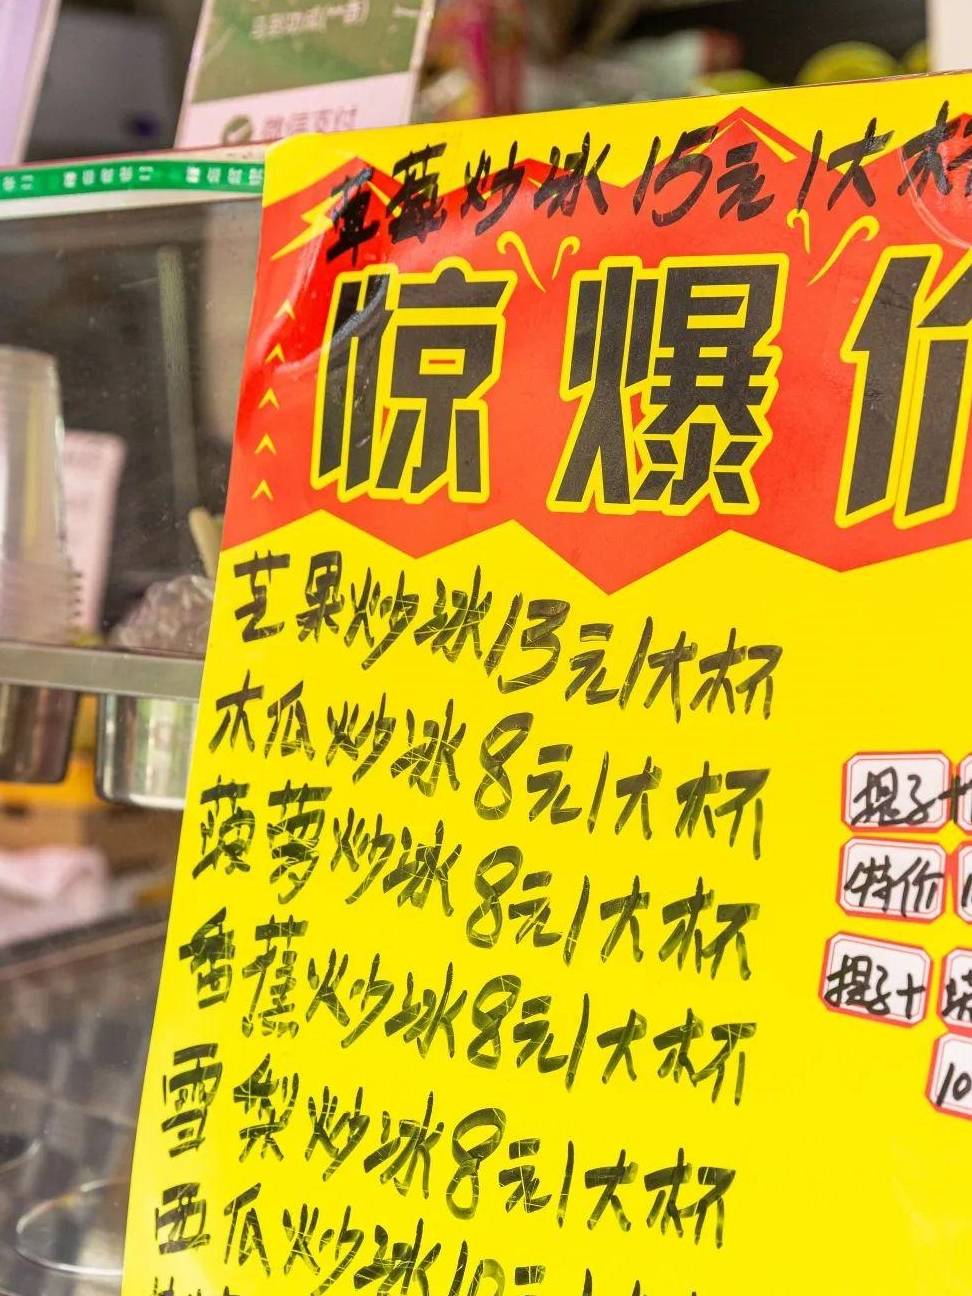 微信支付
草莓炒冰15元1大杯
惊爆价
芒果炒冰13元1大杯
木瓜炒冰8元1大杯
菠萝炒冰8元1大杯
香蕉炒冰8元1大杯
雪梨炒冰8元1大杯
西瓜炒冰10元
提子+
特价
提子+
10